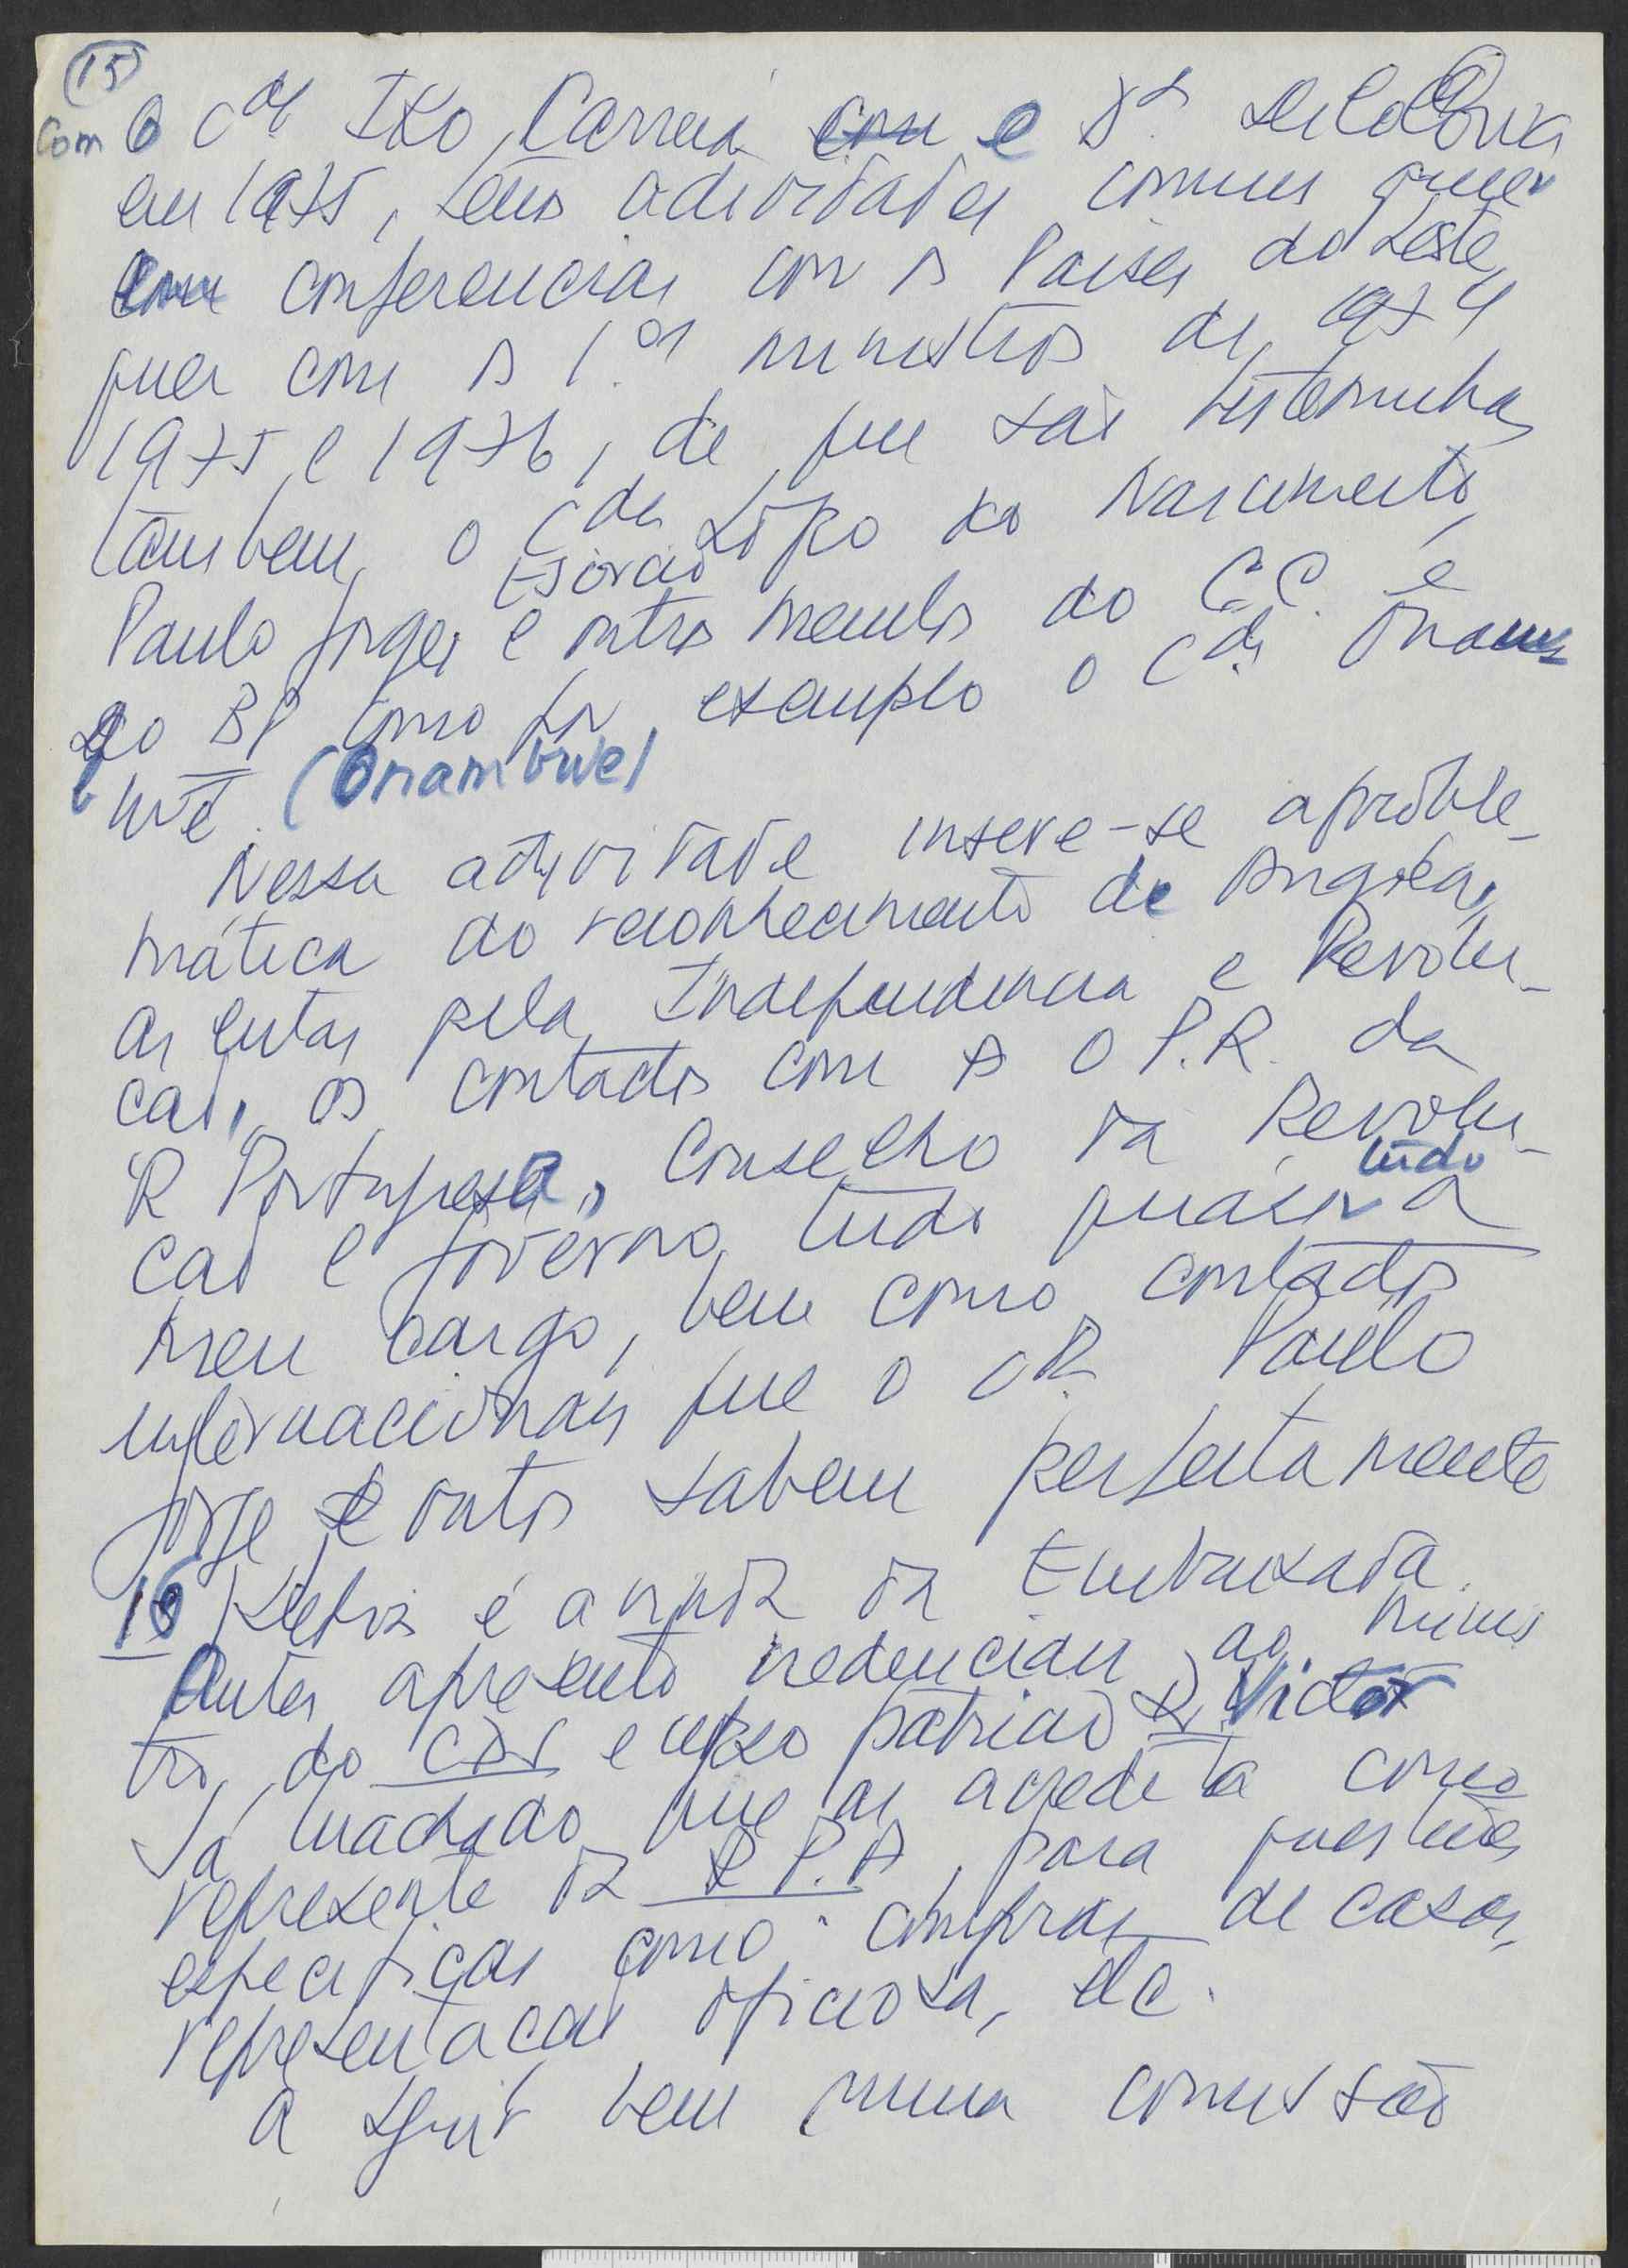 (15)
Com o Cde Iko Carreia e Dr.
em 1975, temos actividades comuns quer
conferencias com os Paises do Leste,
quer com os 1.os ministros de 1974
1975 e 1976, de que são testemunhas
tambem, o Cde Lopo do Nascimento,
Paulo Jorge, e outros membros do C.C. e
do BP como por exemplo o Cde. Onam
bwé. (Onambwe)
Nessa actividade insere-se a proble-
mática do reconhecimento de Angola,
as lutas pela Independencia e Revolu-
cao, os contactos com o P.R. da
R Portuguesa, Conselho da Revolu-
cao e governo, tudo quasi tudo a
meu cargo, bem como contactos
internacionais que o Paulo
Jorge e outros sabem perfeitamente
16 é a vinda da Embaixada.
Antes apresento credenciais ao minis
tro, do e patricio Dr. Victor
Sá Machado que as acredita como
represente da R P.A, para questões
especificas como compras de casas,
representacao oficiosa, etc.
A seguir vem numa comissão